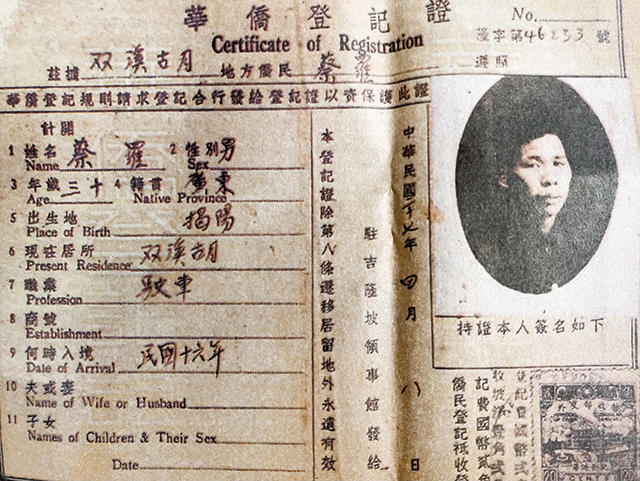 華僑登記證
Certificate of Registration
No.
茲字第46233號
遵照
茲據 双溪古月 地方僑民 蔡羅
華僑登記規則請求登記合行發給登記證以資保護此證
計開
1 姓名 蔡羅 2 性別 男
Name Sex
3 年歲 三十 4 籍貫 廣東
Age Native Province
5 出生地 揭陽
Place of Birth
6 現在居所 双溪古月
Present Residence
7 職業 駛車
Profession
8 商號
Establishment
9 何時入境 民國十六年
Date of Arrival
10 夫或妻
Name of Wife or Husband
11 子女
Names of Children & Their Sex
Date
本登記證除第八條遷移居留地外永遠有效
中華民國 年 四月 八日
駐吉隆坡領事館發給
持證本人簽名如下
記費國幣貳角
僑民登記祗收登
CENTS